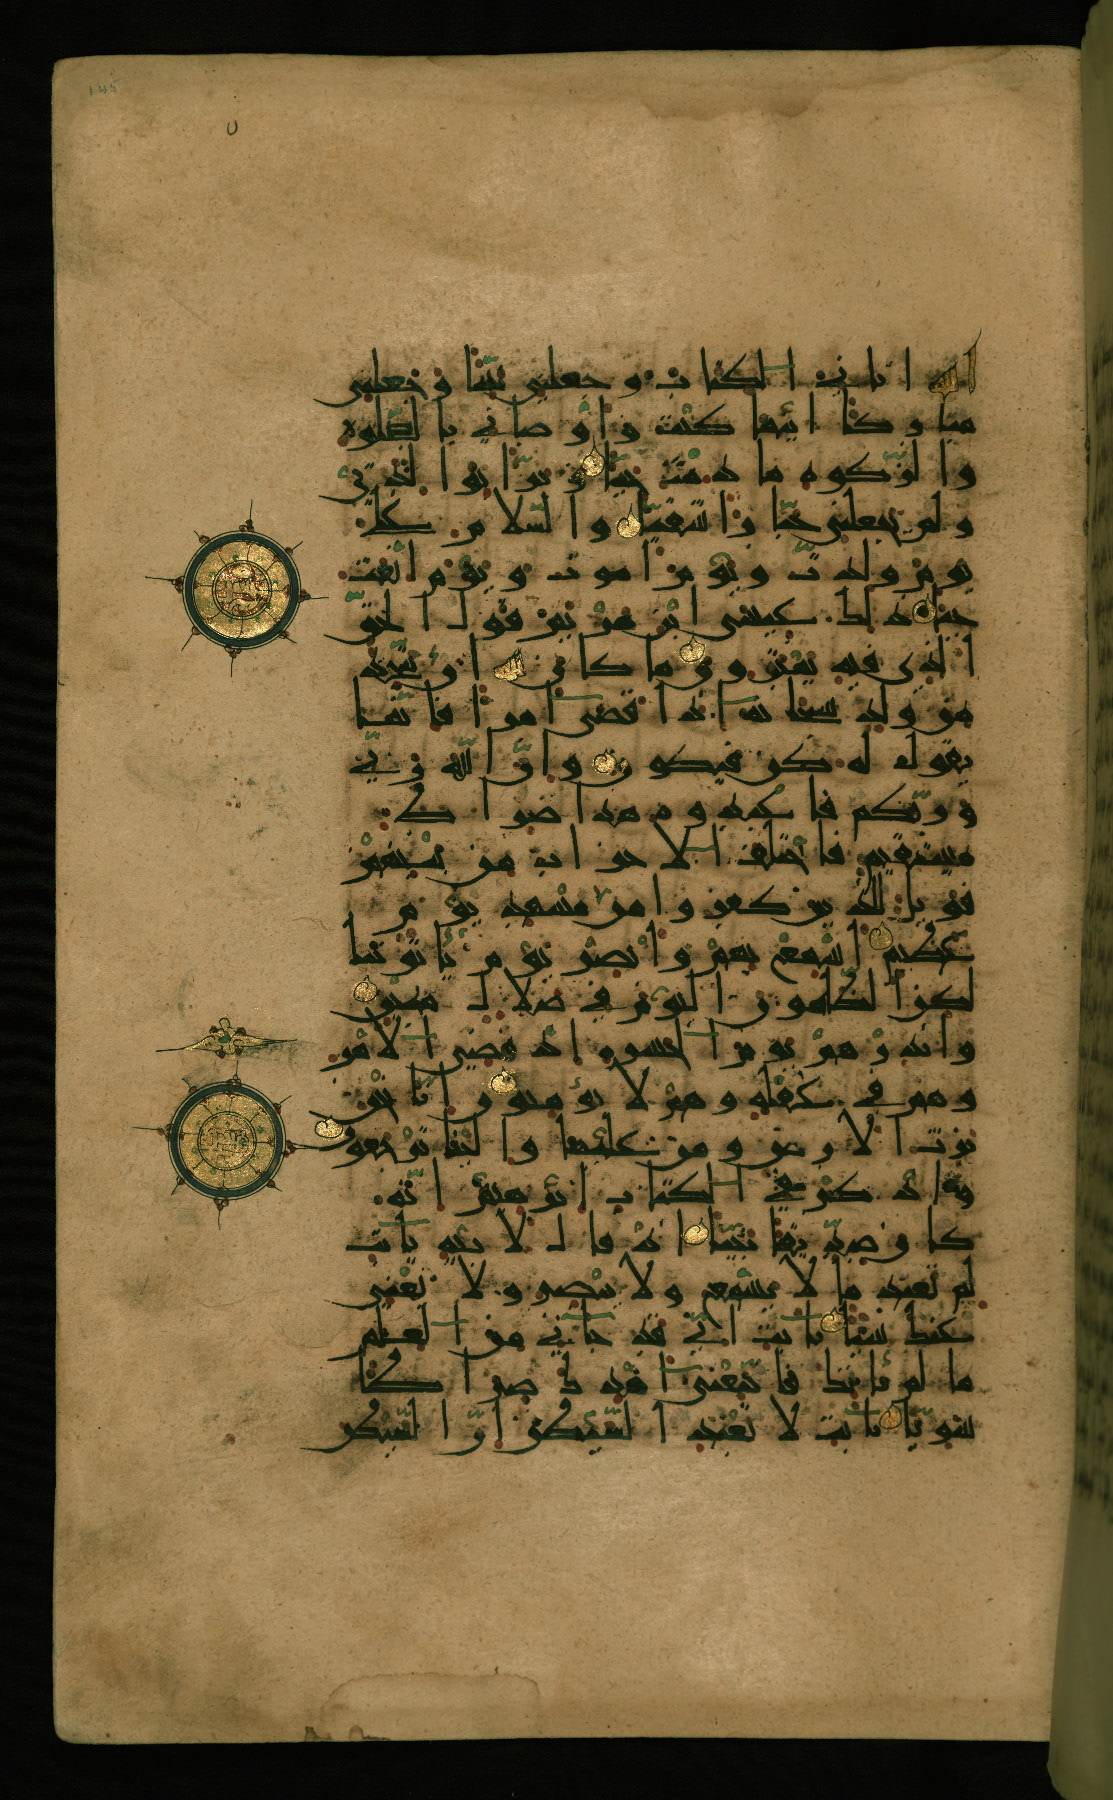 145
الله اتاني الكتاب وجعلني نبيا وجعلني
مباركا اينما كنت واوصاني بالصلوه
والزكوه ما دمت حيا وبرا بوالدتي
ولم يجعلني جبارا شقيا والسلام علي
يوم ولدت ويوم اموت ويوم ابعث
حيا ذلك عيسى ابن مريم قول الحق
الذي فيه يمترون ما كان لله ان يتخذ
من ولد سبحانه اذا قضى امرا فانما
يقول له كن فيكون وان الله ربي
وربكم فاعبدوه هذا صراط
مستقيم فاختلف الاحزاب من بينهم
فويل للذين كفروا من مشهد يوم
عظيم اسمع بهم وابصر يوم ياتوننا
لكن الظالمون اليوم في ضلال مبين
وانذرهم يوم الحسره اذ قضي الامر
وهم في غفله وهم لا يومنون انا نحن
نرث الارض ومن عليها والينا يرجعو
ن واذكر في الكتاب ابرهيم انه
كان صديقا نبيا اذ قال لابيه يابت
لم تعبد ما لا يسمع ولا يبصر ولا يغني
عنك شيئا يابت اني قد جاني من العلم
ما لم ياتك فاتبعني اهدك صراطا
سويا يابت لا تعبد الشيطن ان الشيطن